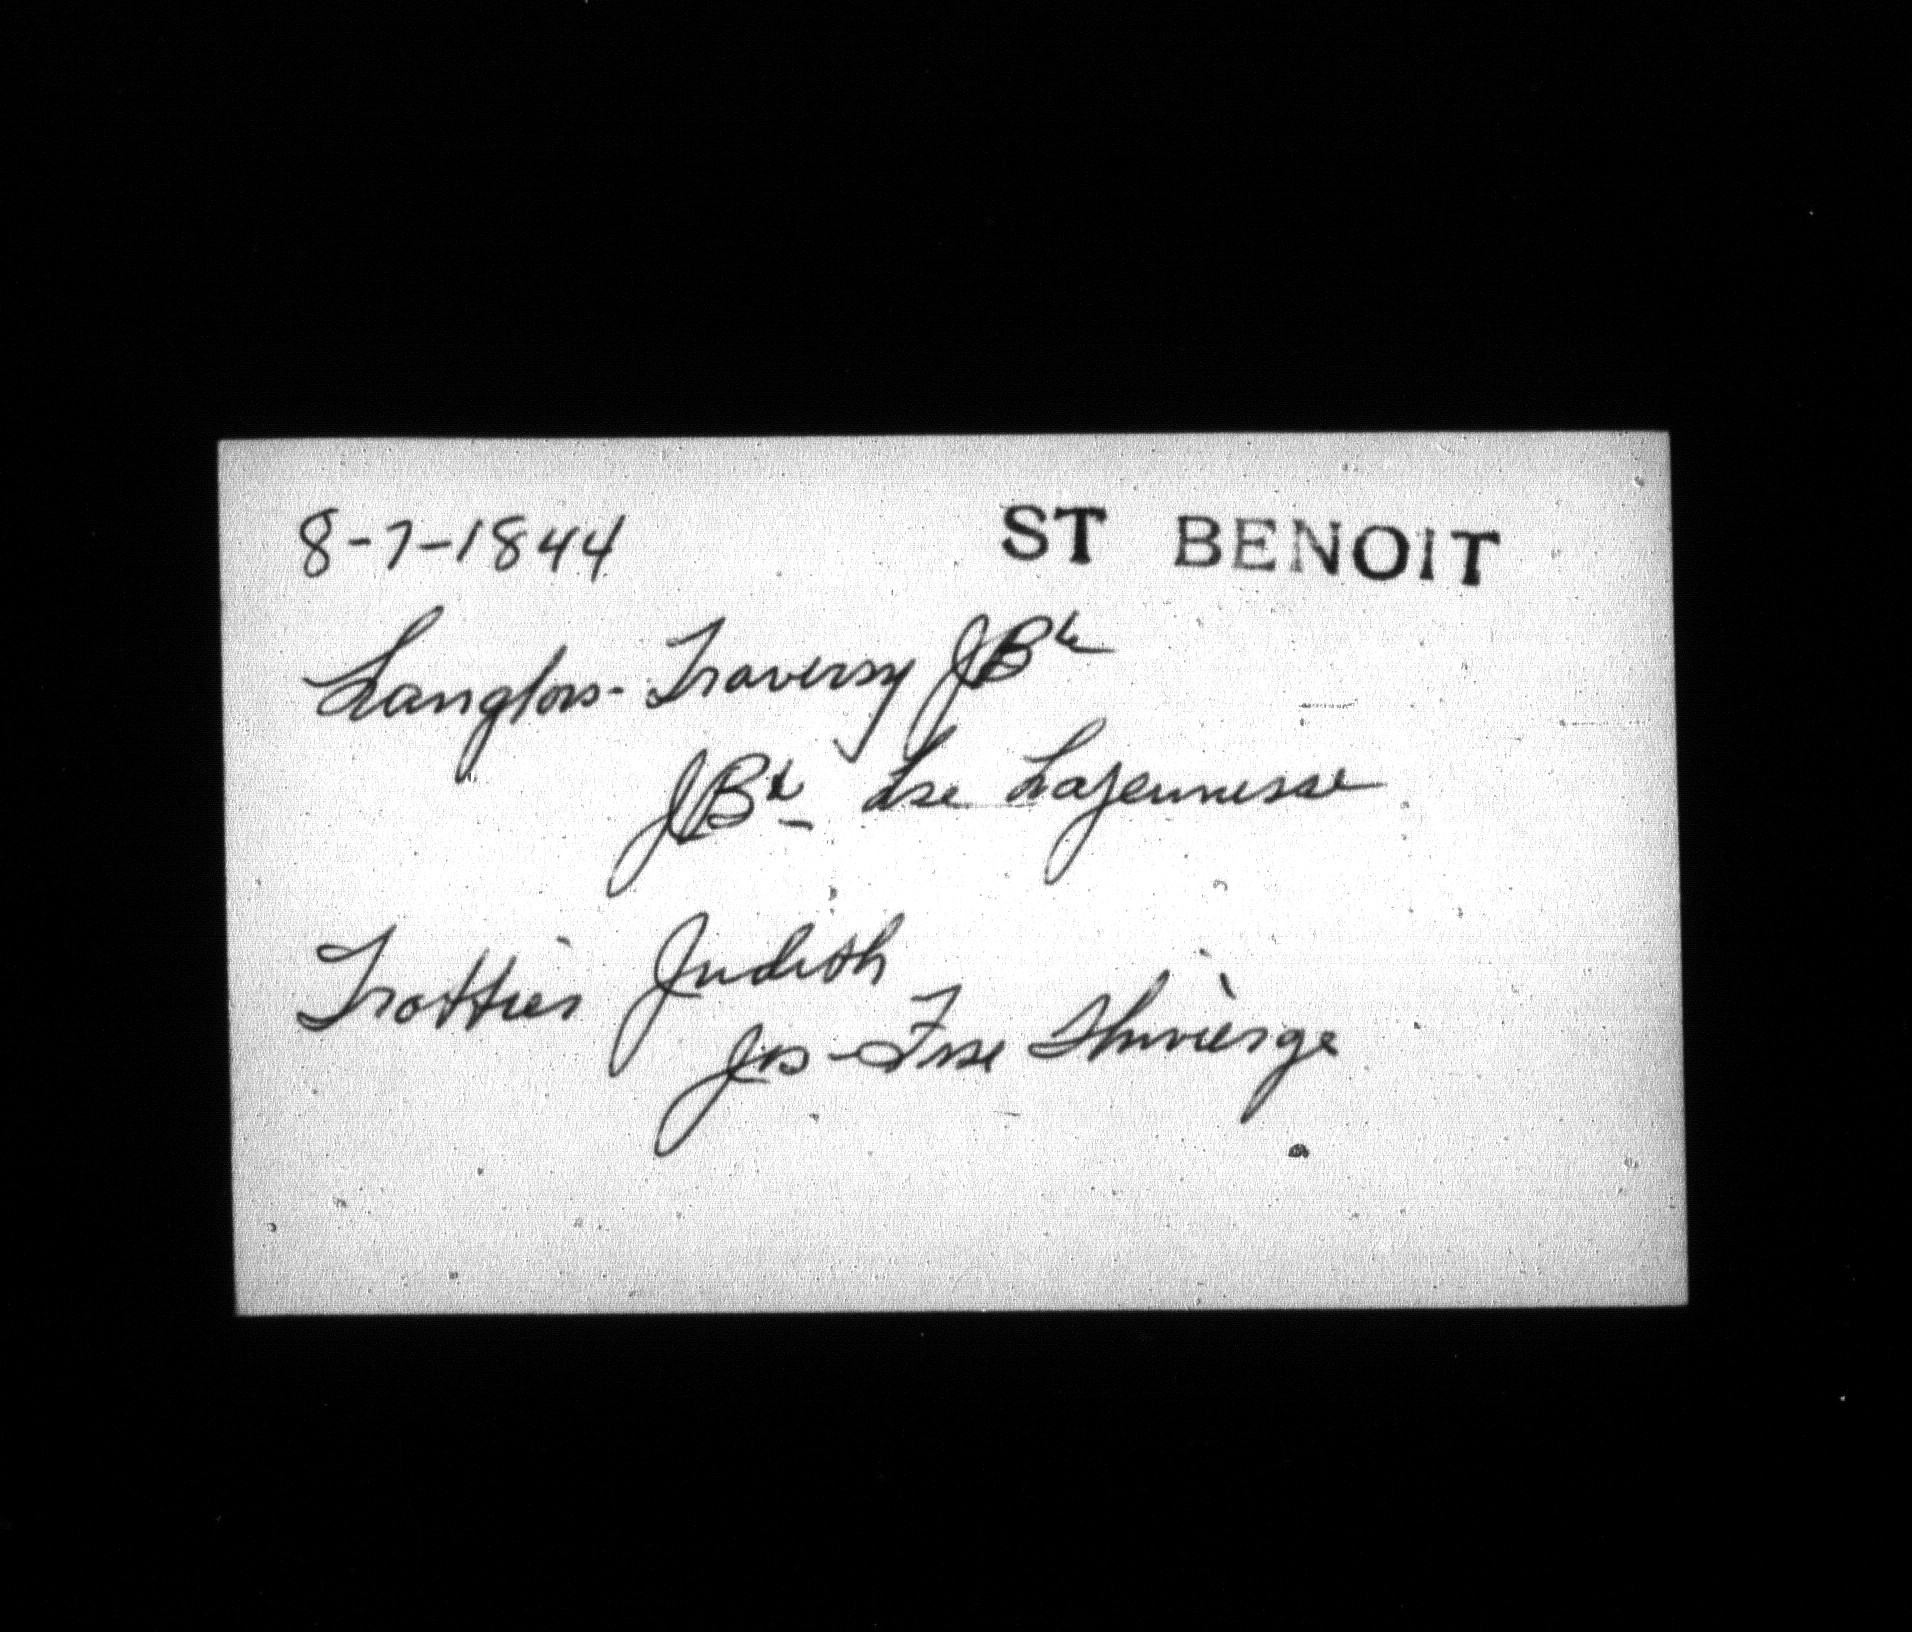 8-7-1844 ST BENOIT
Langlois-Traversy JBte
JBte - Lse Lajeunesse
Trottier Judith
Jos - Frse Thivièrge